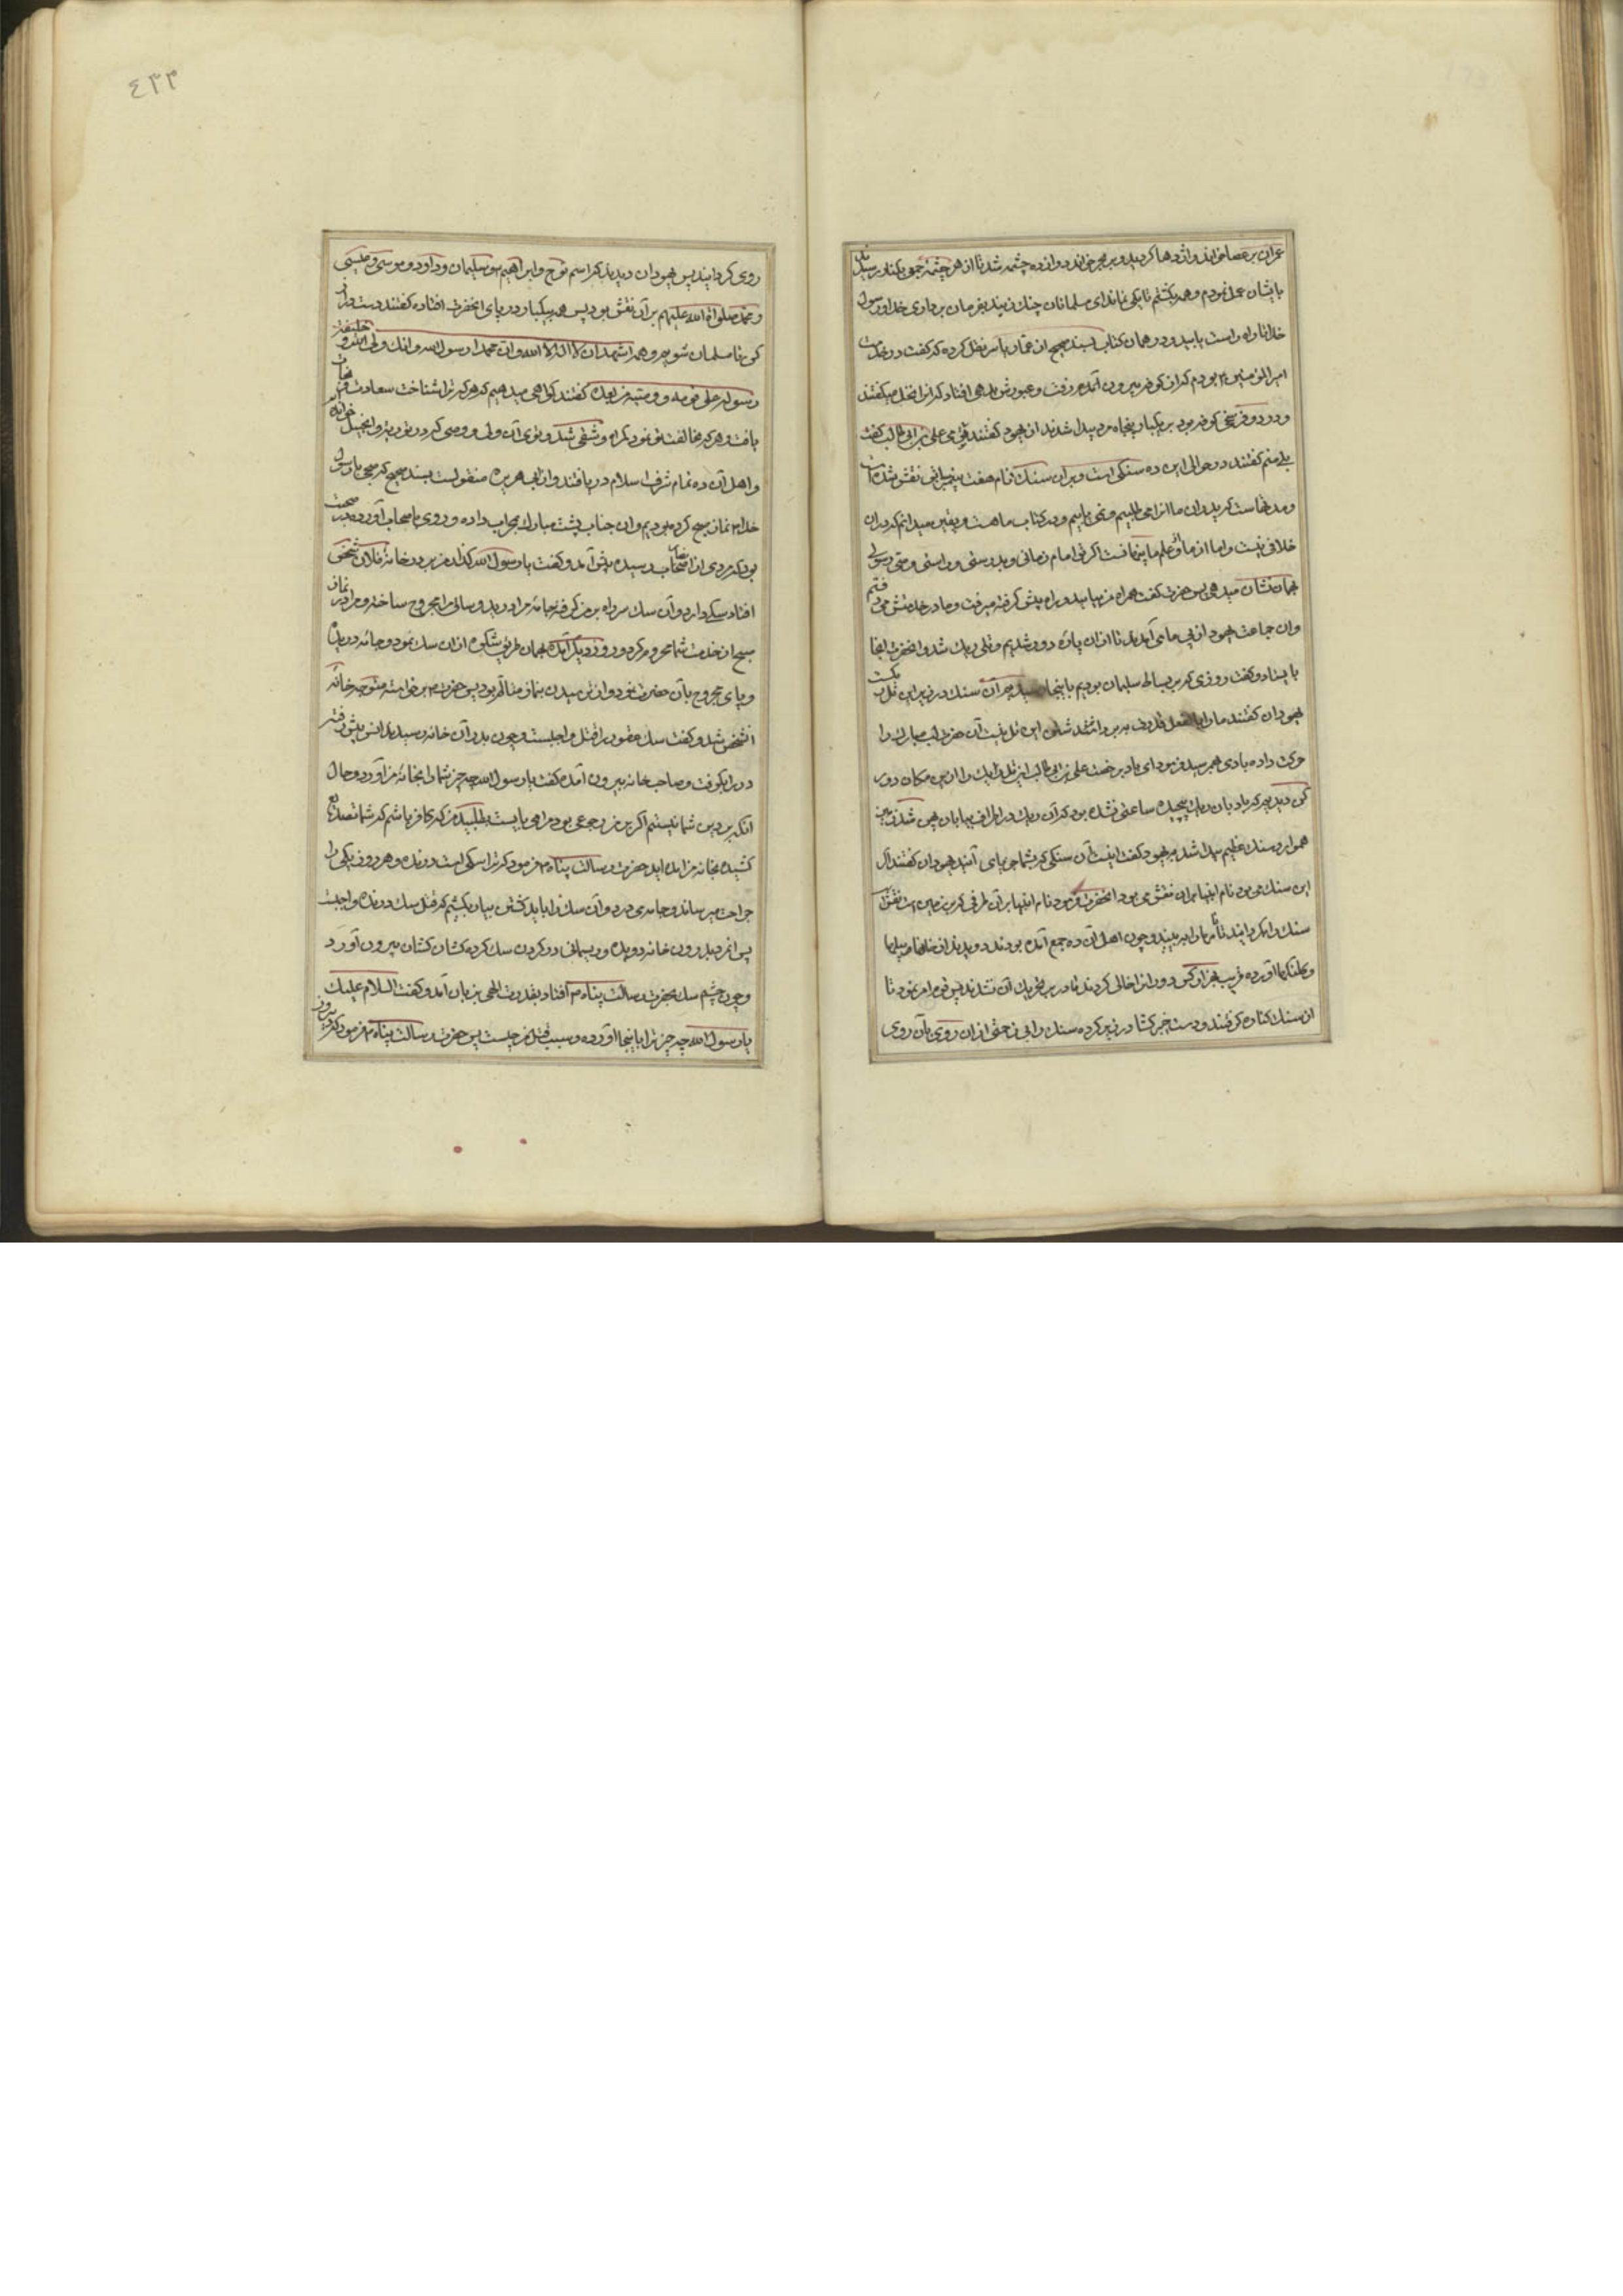 عمران بر عصا خواند واژدها کردید و بر بحر خواند دوازده چشمه شد تا از هر چشمهٔ جمعی بکنار رسیدند
بایشان عمل نمودم وهمه بکشتم تا یکی نماند ای مسلمانان چنك زنید بفرمان برداری خدا ورسول
خدا تا راه راست یابید و در همان کتاب بسند صحیح از عمار یاسر نقل کرده که گفت در خدمت
امیرالمؤمنین ۴ بودم که از کوفه بیرون آمده میرفت وعبورش بدهی افتاد که انرا نخل میکفتند
ودر دو فرسخی کوفه بود بر یکبار پنجاه مرد پیدا شدند از یهود کفتند توئی علی بن ابی طالب کفت
بلی منم کفتند در حوالی این ده سنکی است وبران سنك نام هفت پیغمبران نقش شده است
ومدتهاست که پدران ما انرا می طلبیم ونمی یابیم ودر کتاب ما هست ویقین میدانیم که دران
خلافی نیست واما از ما وعلم ما پنهانست اکر تو امام زمانی وبدرستی وراستی وصی رسولی
بما نشان میدهی پس حضرت کفت همراه من بیایید و راه پیش کرفته میرفت وما در خدمتش می رفتیم
وان جماعت یهود از پی ما می آمدند تا ازان پاره دور شدیم وتلی ریك شد وانحضرت انجا
بایستاد وکفت روزی که بر بساط سلیمان بودیم باینجا رسیدیم آن سنك در زیر این تل ریکست
یهودان کفتند ما را بالفعل قدرت بر برداشتن این تل نیست آن حضرت لب مبارك را
حرکت داده بادی بهم رسید فرمود ای باد برخصت علی بن ابی طالب این تل ریك را ازین مکان دور
کن دیدیم که باد بان ریك پیچیده ساعتی نشده بود که آن ریك در اطراف بیابان پهن شد وزمین
هموار وسنك عظیم پیدا شد بیهود کفت اینست آن سنکی که شما جویای آنید یهودان کفتند ان
این سنك می بود نام انبیا بران نقش می بود انحضرت فرمود نام انبیا بران طرفی که بر زمین است نقش است
سنك را بکردانید تا نامها را ببینید وچون اهل آن ده جمع آمده بودند دویدند از خانها بیلها
وکلنکها آورده قریب بهزار کس دور انرا خالی کردند قادر بر تحریك آن نشدند پس قوم را امر نمود تا
از سنك کناره کرفتند ودست خیبر کشا در زیر کرده سنك را بی زحمتی ازان روی بآن روی
روی کردانید پس یهودان دیدند که اسم نوح وابراهیم وسلیمان وداود وموسی وعیسی
ومحمد صلوات الله علیهم بران نقش بود پس همه بیکبار در پای انحضرت افتاده کفتند دست دراز
کن تا مسلمان شویم وهمه اشهد ان لا اله الا الله وان محمدا رسول الله وانك ولی الله و خلیفة
رسوله علی قومه وامته من بعده کفتند کواهی میدهیم که هر که ترا شناخت سعادت نجات
یافت وهر که مخالفت تو نمود کمراه وشقی شد وتوئی آن ولی ووصی که در توریة وانجیل خوانده ایم
واهل آن ده تمام شرف اسلام دریافتند واز ابی هریره منقولست بسند صحیح که صبحی با رسول
خدا ۴ نماز صبح کرده بودیم وان جناب پشت مبارك بمحراب داده وروی باصحاب آورده در صحبت
بود که مردی از اصحاب رسیده پیش آمد وکفت یا رسول الله کذار من بر در خانهٔ فلان شخص
افتاد سکی دارد وآن سك سر راه بر من کرفته جامهٔ مرا درید وساق مرا مجروح ساخته ومرا از نماز
صبح از خدمت شما محروم کرد و روز دیکر آمده همان طریق شکوه ازان سك نمود وجامه دریده
وپای مجروح بآن حضرت نمود واز نرسیدن بنماز متالم بود پس حضرت ۴ برخواسته متوجه خانهٔ
انشخص شد وکفت سك عقور را قتل واجبست وچون بدر آن خانه رسیدند انس پیش رفته
در را بکوفت وصاحب خانه بیرون آمده کفت یا رسول الله چه چیز شما را بخانهٔ من آورد وحال
انکه بر دین شما نیستم اکر بمن رجوعی بود مرا می بایست بطلبید من که کافر باشم که شما تصدیع
کشیده بخانهٔ من آمده اید حضرت رسالت پناه ۴ فرمود که ترا سکی است درنده وهر روز یکی را
جراحت میرساند وجامه می درد وآن سك را باید کشتن بیار بکشیم که قتل سك درنده واجبست
پس انمرد بدرون خانه دویده وریسمانی در کردن سك کرده کشان کشان بیرون آورد
وچون چشم سك بحضرت رسالت پناه ۴ افتاد بقدرت الهی بزبان آمد وکفت السلام علیك
یا رسول الله چه چیز ترا باینجا آورده وسبب قتل من چیست پس حضرت رسالت پناه ۴ فرمود که
٤٣٣